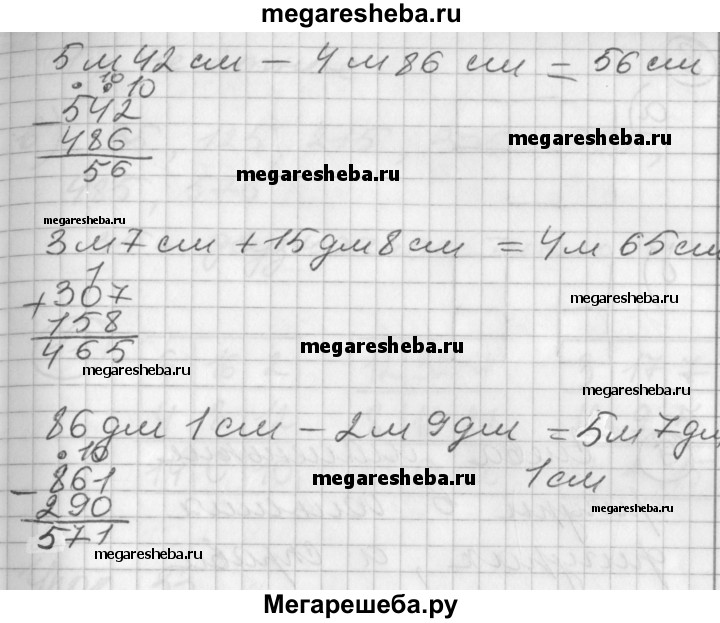 megaresheba.ru
5 м 42 см – 4 м 86 см = 56 см
10 10
– 542
486
56
megaresheba.ru
megaresheba.ru
megaresheba.ru
3 м 7 см + 15 дм 8 см = 4 м 65 см
1
+ 307
158
465
megaresheba.ru
megaresheba.ru
megaresheba.ru
megaresheba.ru
86 дм 1 см – 2 м 9 дм = 5 м 7 дм
1 см
10
– 861
290
571
megaresheba.ru
megaresheba.ru
megaresheba.ru
Мегарешеба.ру